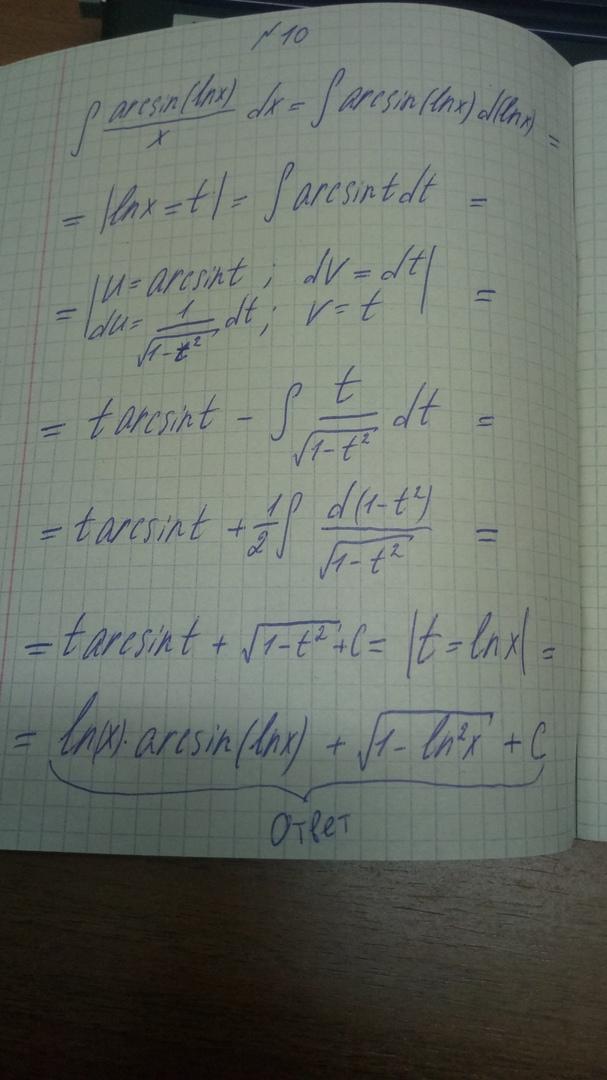 №10
∫ arcsin(lnx)/x dx = ∫ arcsin(lnx) d(lnx) =
= |lnx = t| = ∫ arcsint dt =
= |u = arcsint ; dv = dt|
du = 1/√(1-t²) dt ; v = t| =
= t arcsint - ∫ t/√(1-t²) dt =
= t arcsint + 1/2 ∫ d(1-t²)/√(1-t²) =
= t arcsint + √(1-t²) + C = |t = lnx| =
= ln(x)·arcsin(lnx) + √(1-ln²x) + C
Ответ